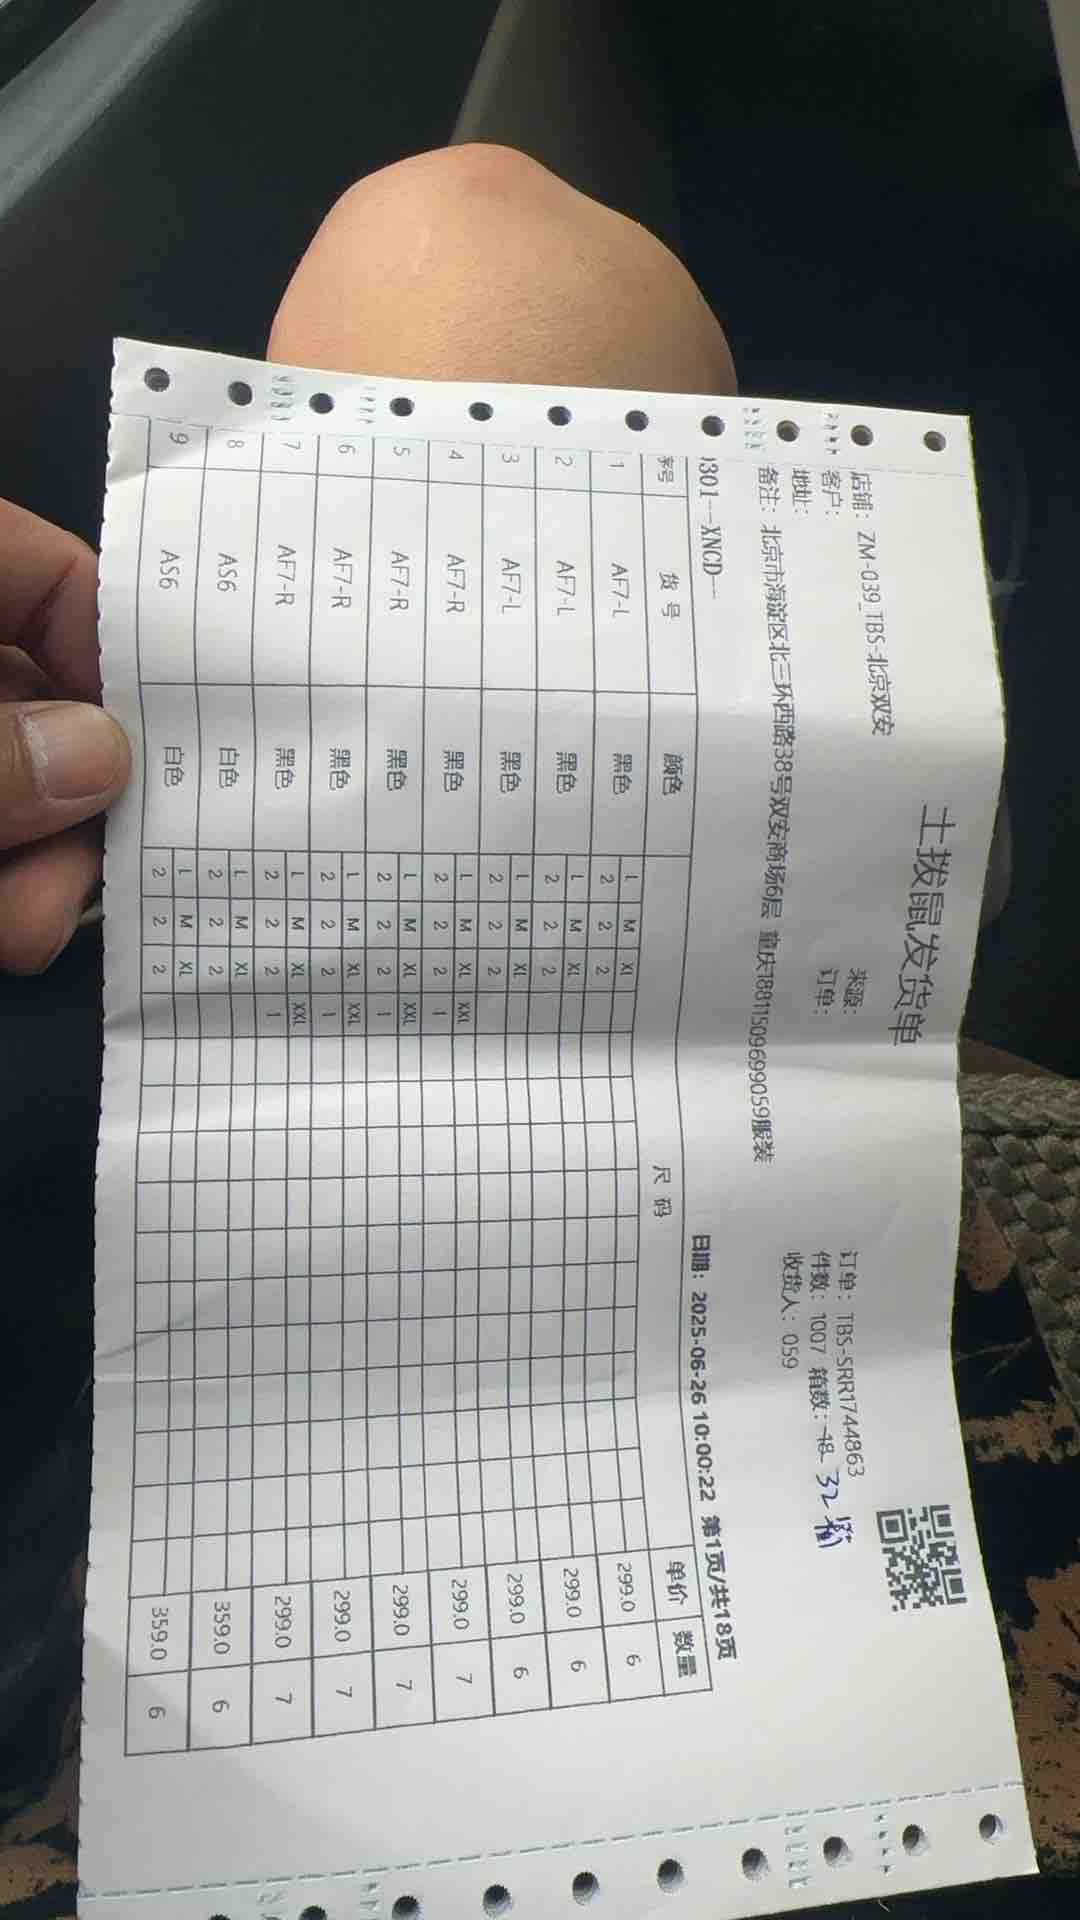 土拨鼠发货单
店铺：ZM-039_TBS-北京双安
来源：
订单：TBS-SRR1744863
客户：
订单：
件数：1007 箱数：18 32箱
地址：
收货人：059
备注：北京市海淀区北三环西路38号双安商场6层 童庆18811509699059服装
0301--XNCD--
日期：2025-06-26 10:00:22 第1页/共18页
序号 货号 颜色 尺码 单价 数量
1 AF7-L 黑色 L M XL 299.0 6
2 2 2
2 AF7-L 黑色 L M XL 299.0 6
2 2 2
3 AF7-L 黑色 L M XL 299.0 6
2 2 2
4 AF7-R 黑色 L M XL XXL 299.0 7
2 2 2 1
5 AF7-R 黑色 L M XL XXL 299.0 7
2 2 2 1
6 AF7-R 黑色 L M XL XXL 299.0 7
2 2 2 1
7 AF7-R 黑色 L M XL XXL 299.0 7
2 2 2 1
8 AS6 白色 L M XL 359.0 6
2 2 2
9 AS6 白色 L M XL 359.0 6
2 2 2